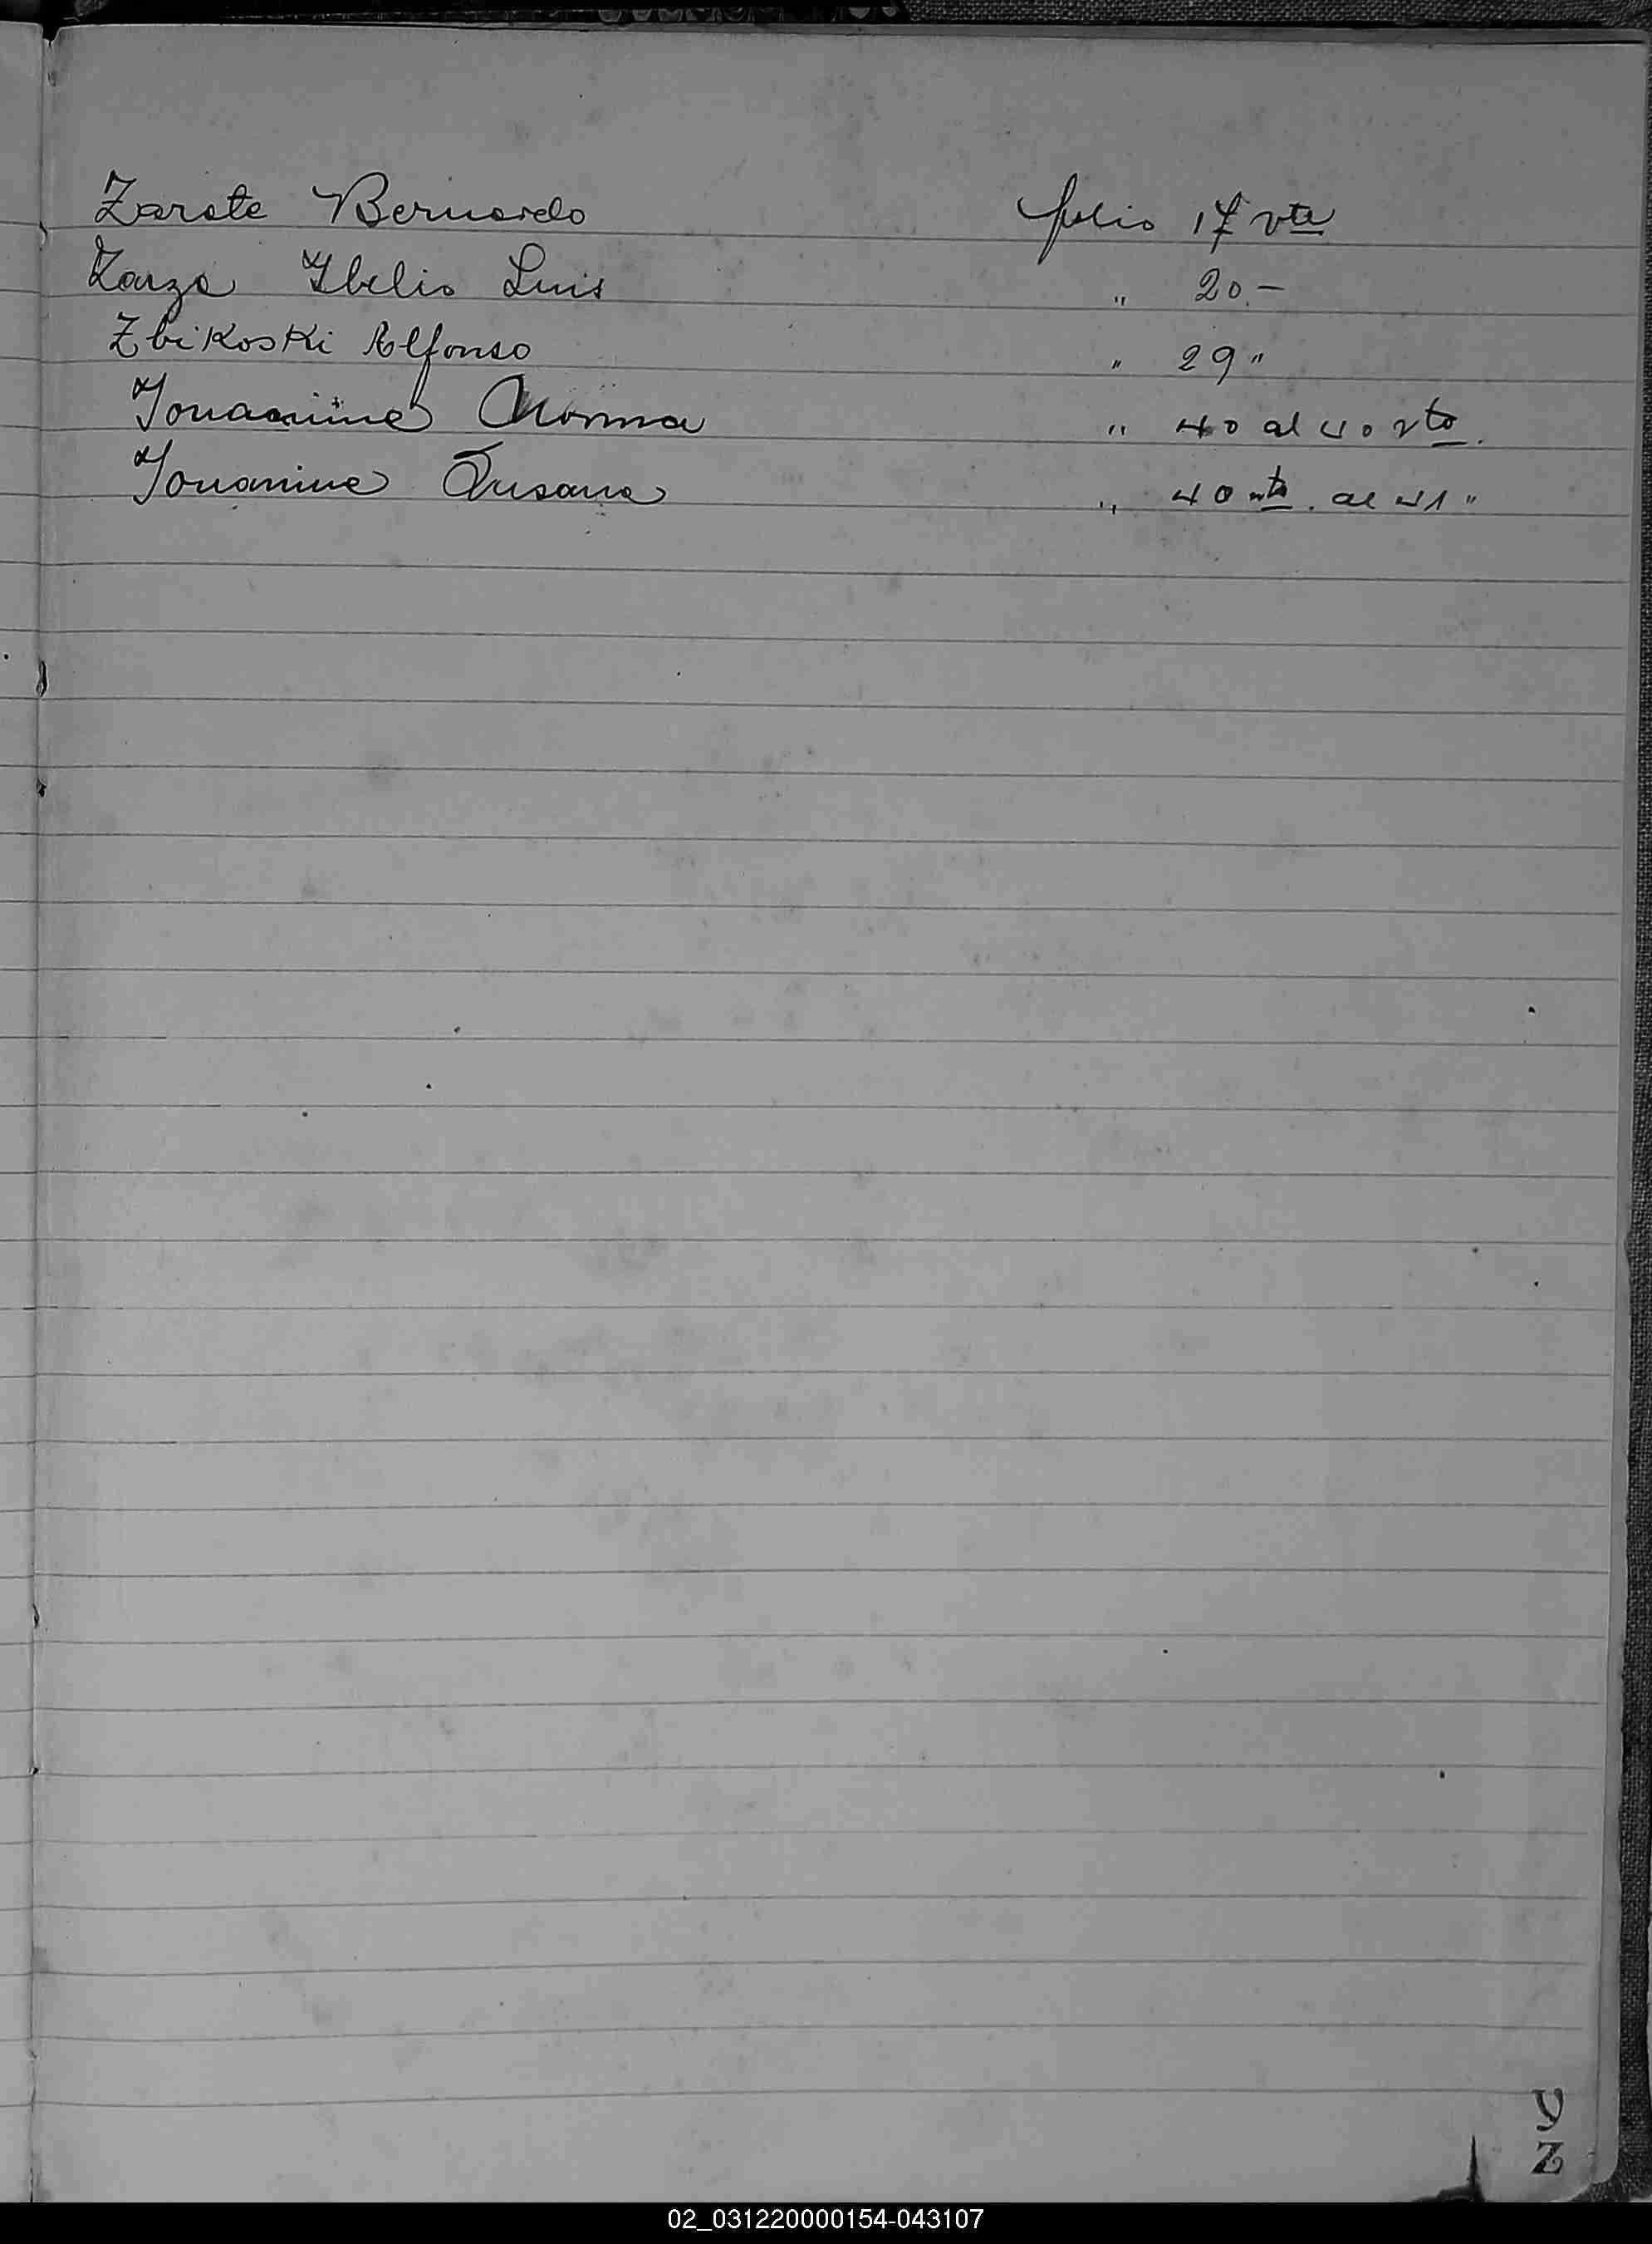 Zarate Bernardo folio 17 vta
Zarza Ibelio Luis " 20.-
Zbikoski Alfonso " 29 "
Youanine Norma " 40 al 40 vto.
Youanine Susana " 40 vto. al 41 "
Y
Z
02_031220000154-043107